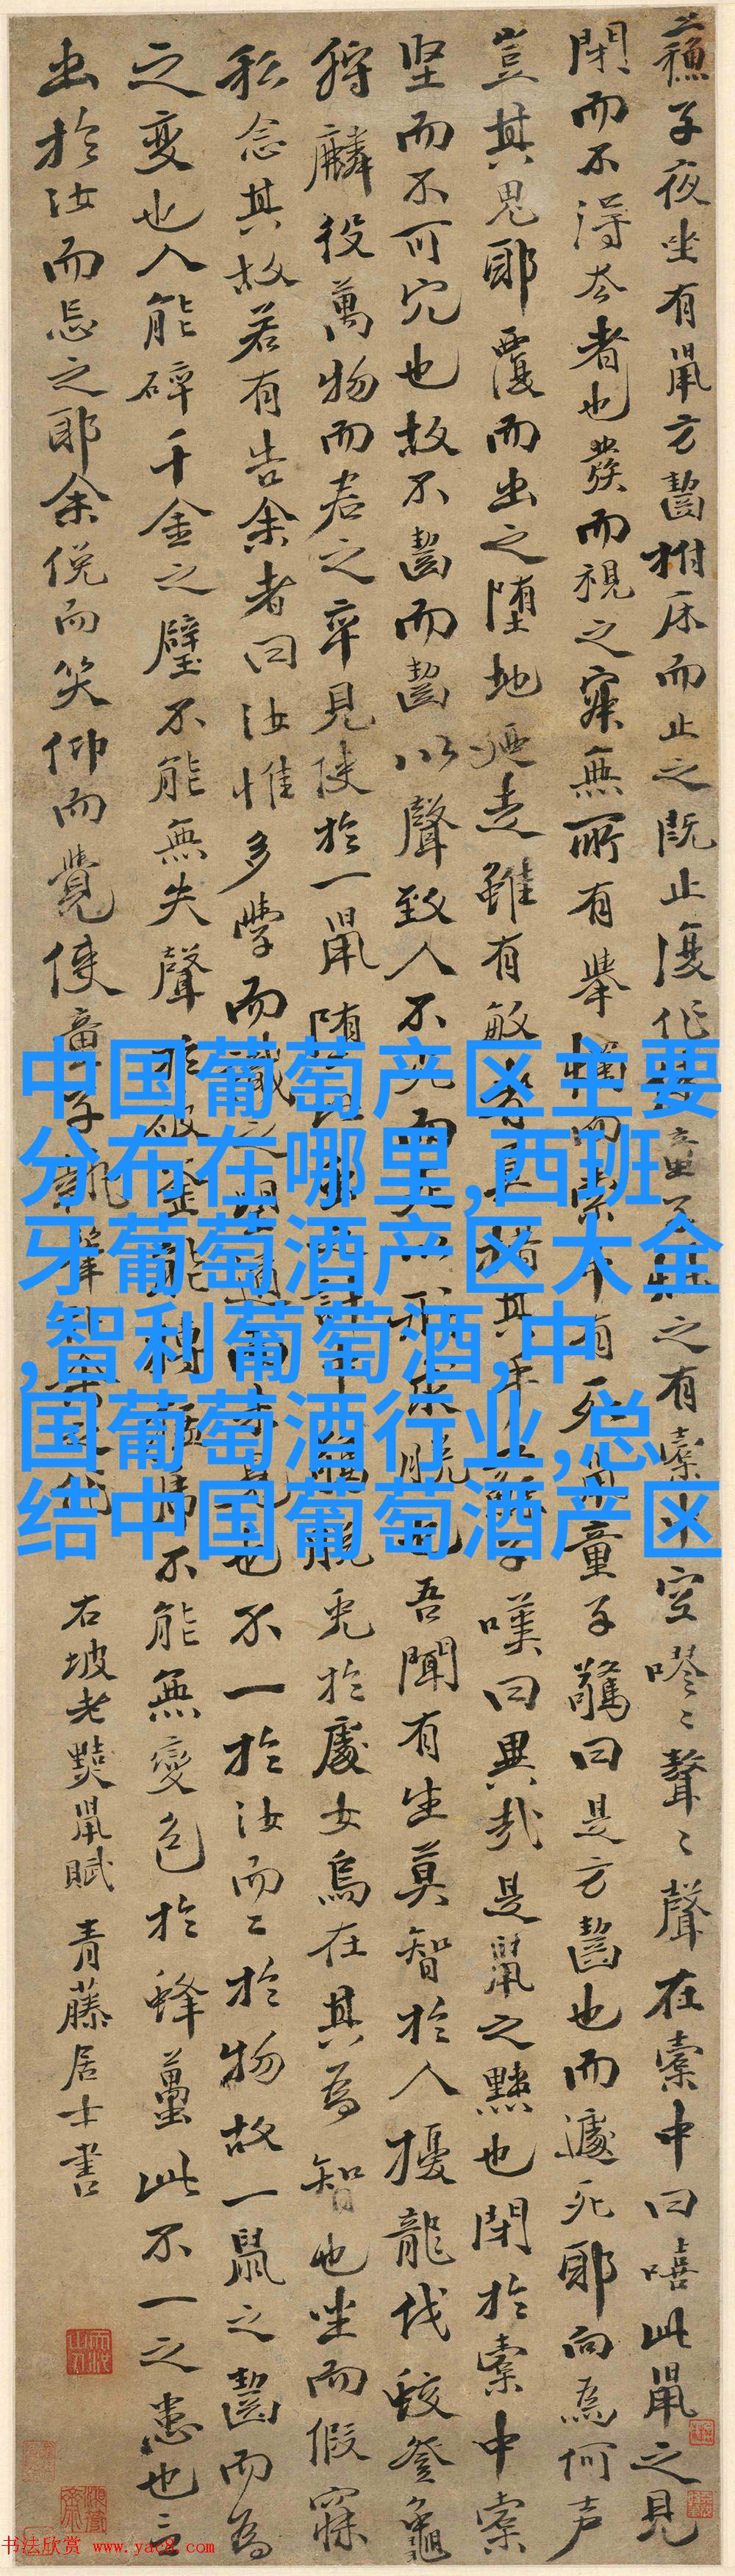 蘓子夜坐有鼠方齧拊床而止之既止復作童子燭之有橐中空嘐〻聱〻聲在橐中曰嘻此鼠之見
閉而不得去者也發而視之寂無所有舉燭而索中有死鼠童子驚曰是方齧也而遽死耶向為何声
豈其鬼耶覆而出之墮地迺走雖有敏者莫措其手子嘆曰異哉是鼠之黠也閉於橐中橐
堅而不可穴也故不齧而齧以聲致人不死而死以形求脱也吾聞有生莫智於人擾龍伐蛟登龜
狩麟役萬物而君之卒見使於一鼠墮計中脱兎於處女烏在其為智也坐而假寐
私念其故若有告余者曰汝惟多學而識之望道而未見也不一於汝而二於物故一鼠之齧而為
之變也人能碎千金之璧不能無失聲於破釜能搏猛虎不能無變色於蜂蠆此不一之患也言
出於汝而忘之耶余俛而笑仰而覺使童子執筆
右坡老黠鼠賦 青藤居士書
中国葡萄产区主要
分布在哪里,西班
牙葡萄酒产区大全
,智利葡萄酒,中
国葡萄酒行业,总
结中国葡萄酒产区
书法欣赏 www.yac8.com